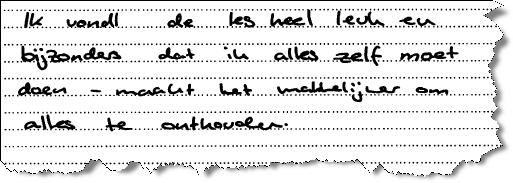 Ik vondt de les heel leuk en
bijzonders dat ik alles zelf moet
doen - maakt het makkelijker om
alles te onthouden.